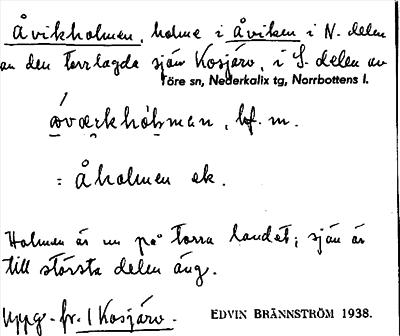 Åvikholmen, holme i Åviken i N. delen
av den torrlagda sjön Kosjärv, i S. delen av
Töre sn, Nederkalix tg, Norrbottens l.
åværkhòḷman, bf. m.
= Åholmen ek.
Holmen är nu på torra landet; sjön är
till största delen äng.
Uppg. fr. 1 Kosjärv.
EDVIN BRÄNNSTRÖM 1938.